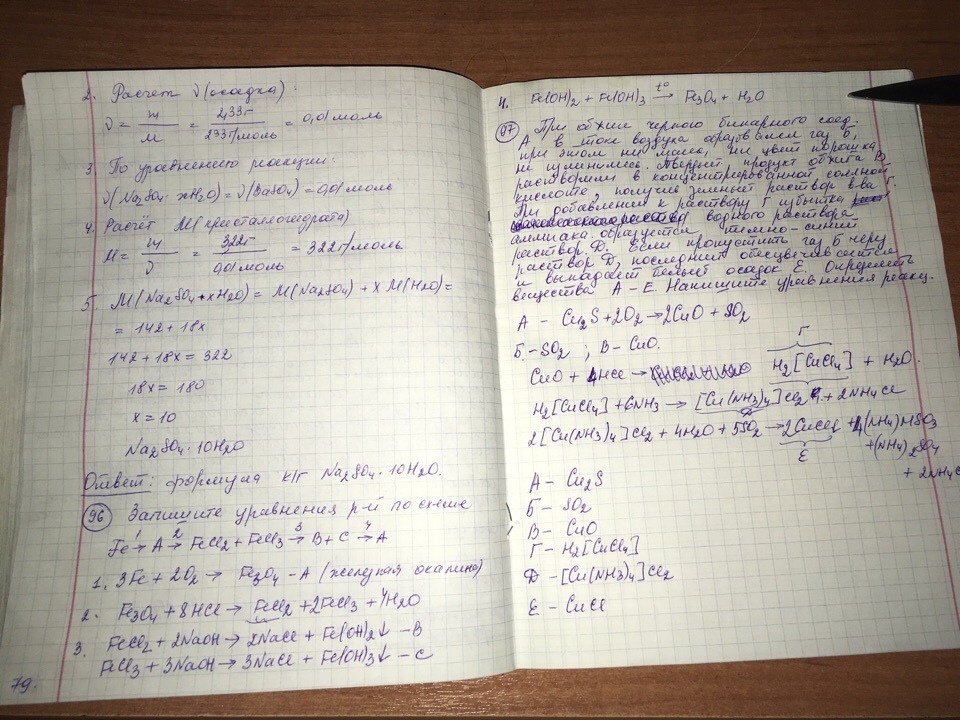 2. Расчет ν(осадка):
ν = m/M = 2,33г/233г/моль = 0,01 моль
3. По уравнению реакции:
ν(Na2SO4·xH2O) = ν(BaSO4) = 0,01 моль
4. Расчёт M(кристаллогидрата)
M = m/ν = 3,22г/0,01моль = 322г/моль
5. M(Na2SO4·xH2O) = M(Na2SO4) + x M(H2O) =
= 142 + 18x
142 + 18x = 322
18x = 180
x = 10
Na2SO4·10H2O
Ответ: формула к/г Na2SO4·10H2O.
96 Запишите уравнения р-й по схеме
Fe →1 A →2 FeCl2 + FeCl3 →3 B + C →4 A
1. 3Fe + 2O2 → Fe3O4 - A (железная окалина)
2. Fe3O4 + 8HCl → FeCl2 + 2FeCl3 + 4H2O
3. FeCl2 + 2NaOH → 2NaCl + Fe(OH)2↓ - B
FeCl3 + 3NaOH → 3NaCl + Fe(OH)3↓ - C
79.
4. Fe(OH)2 + Fe(OH)3 →t° Fe3O4 + H2O
97 При обжиге черного бинарного соед.
А в токе воздуха образовался газ Б,
при этом ни масса, ни цвет порошка
не изменились. Твердый продукт обжига В
растворили в концентрированной соляной
кислоте, получив зеленый раствор в-ва Г.
При добавлении к раствору Г избытка
водного раствора
аммиака образуется темно-синий
раствор Д. Если пропустить газ Б через
раствор Д, последний обесцвечивается
и выпадает белый осадок Е. Определить
вещества А - Е. Напишите уравнения реакц.
А - Cu2S + 2O2 → 2CuO + SO2
Б - SO2 ; В - CuO.
Г
CuO + 4HCl → H2[CuCl4] + H2O.
H2[CuCl4] + 6NH3 → [Cu(NH3)4]Cl2 + 2NH4Cl
Д
2[Cu(NH3)4]Cl2 + 4H2O + 5SO2 → 2CuCl + 4(NH4)HSO3
Е
+ (NH4)2SO4
+ 2NH4C
А - Cu2S
Б - SO2
В - CuO
Г - H2[CuCl4]
Д - [Cu(NH3)4]Cl2
Е - CuCl